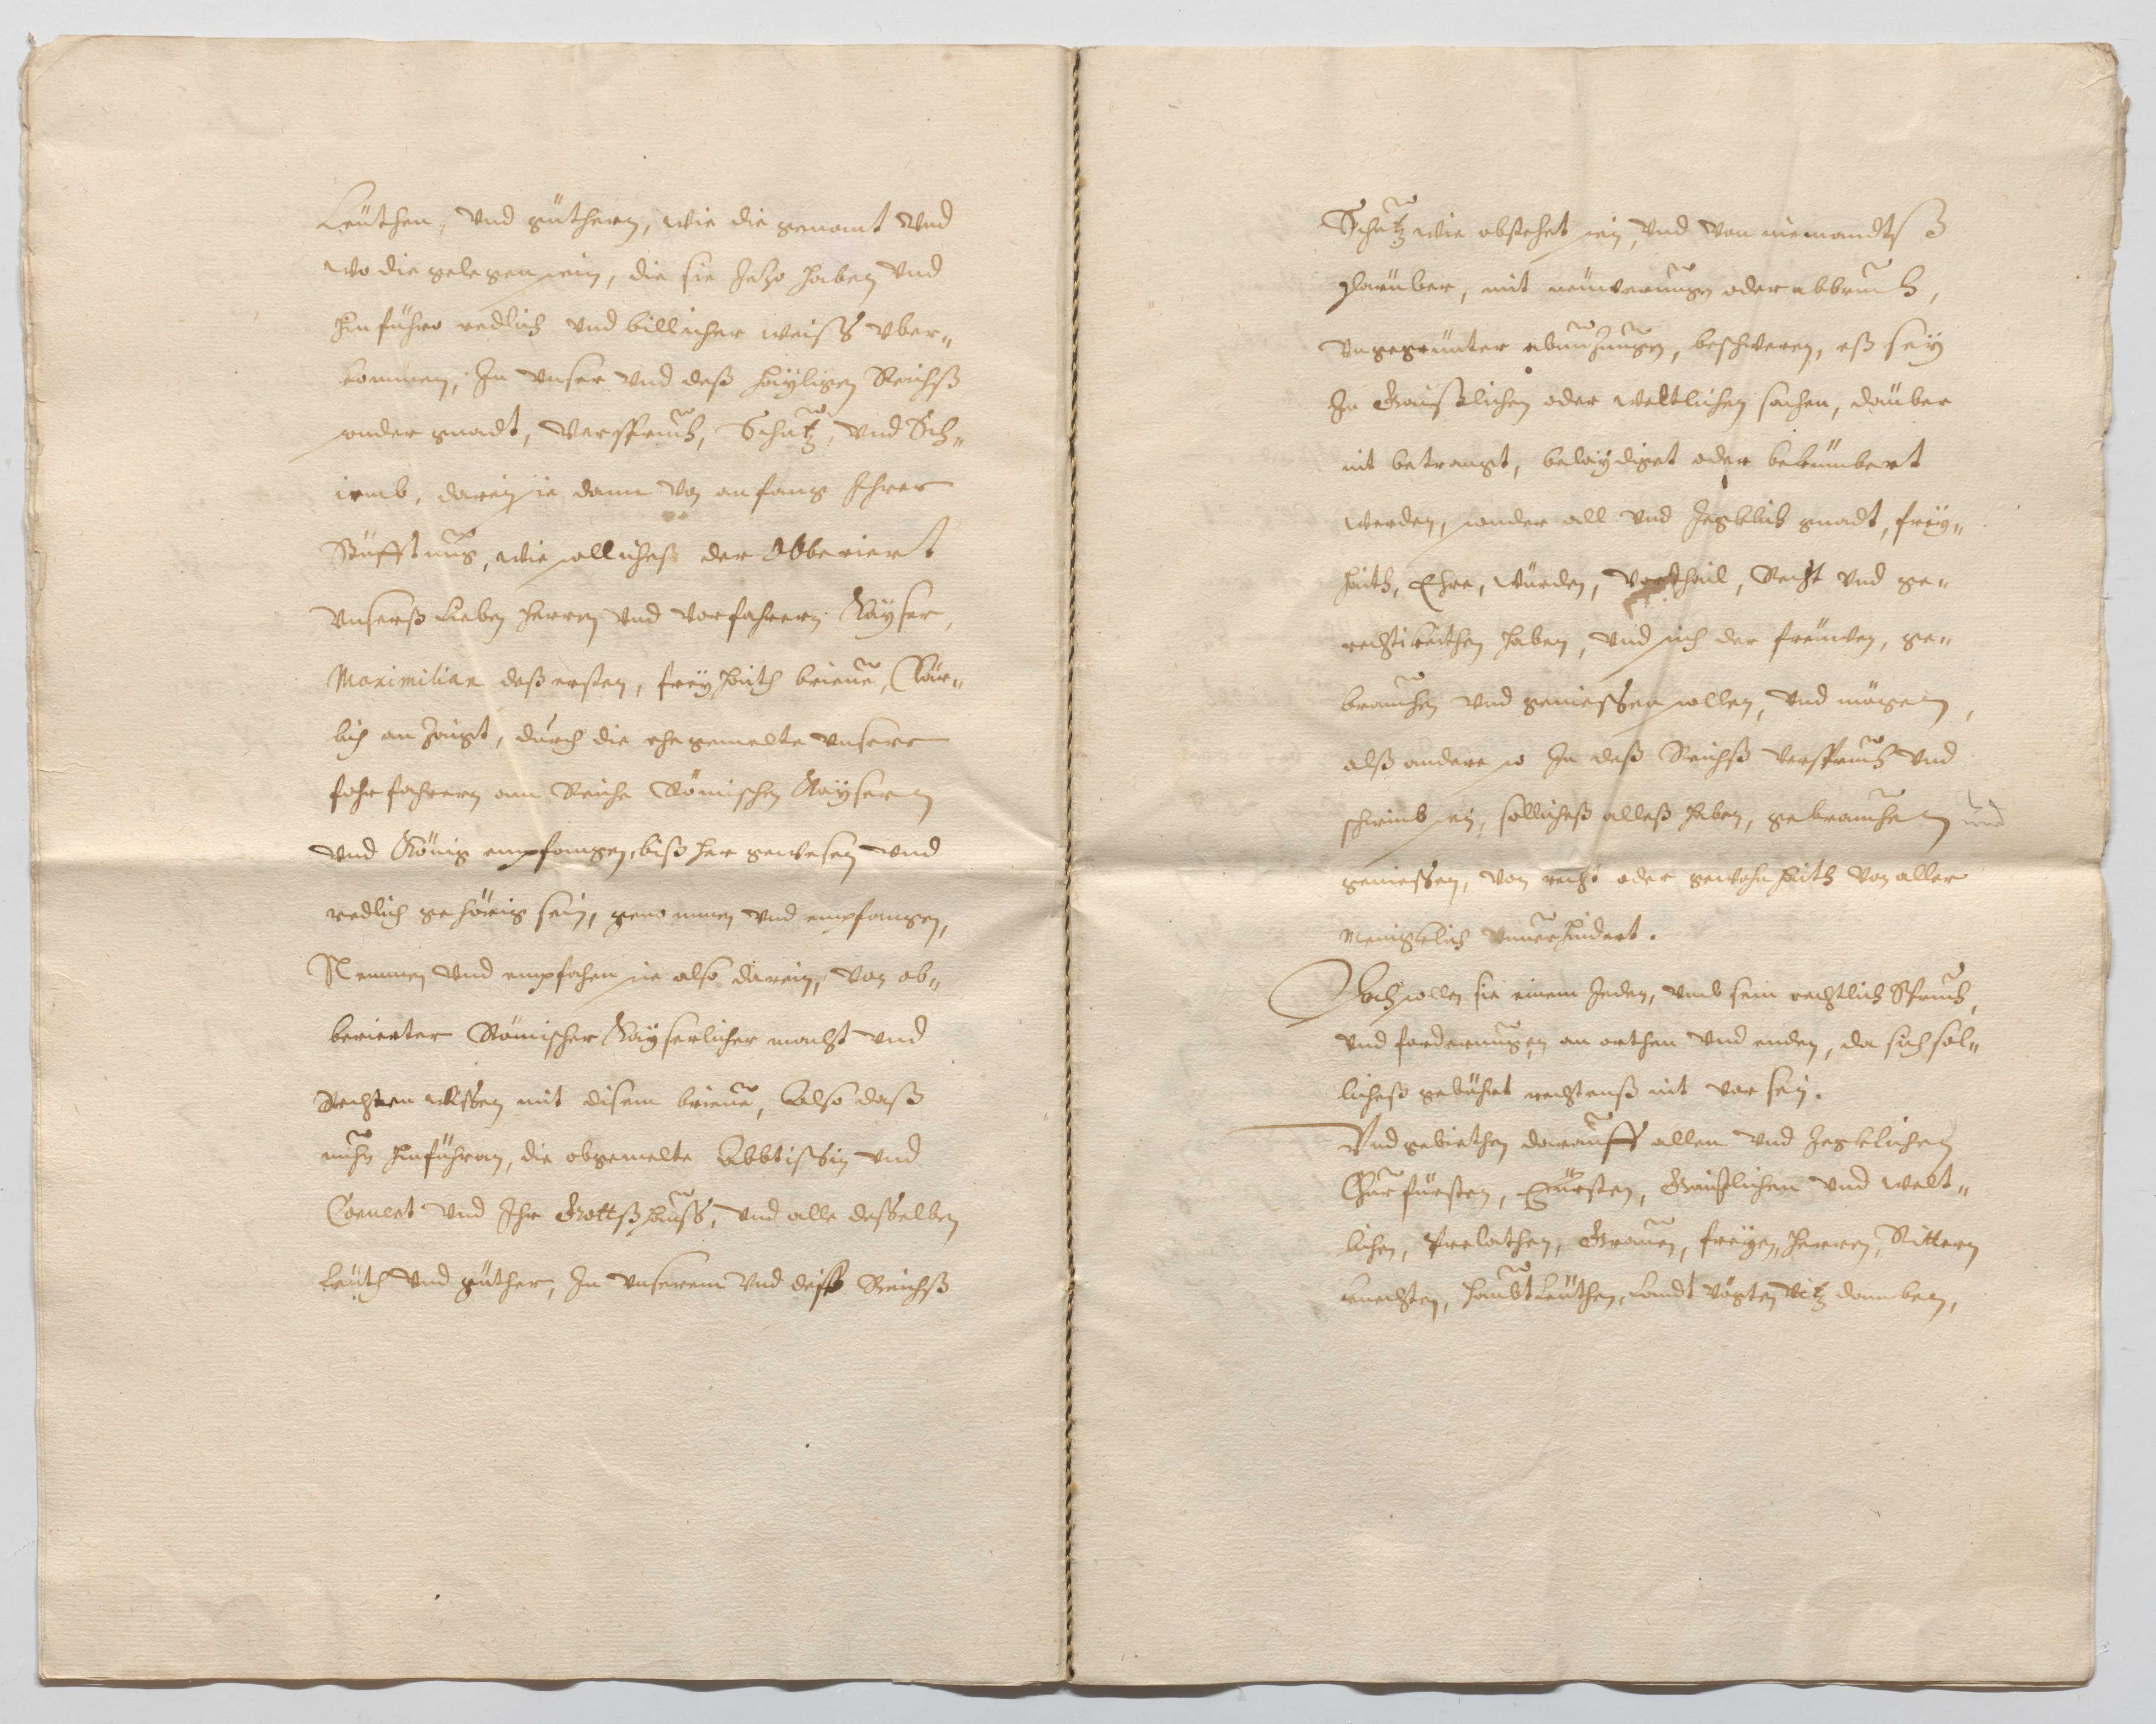 Leüthen, vnd güthern, wie die genant vnd
wo die gelegen sein, die sie Jetzo haben vnd
hinführo redlich vnd billicher weiss vber„
kommen, In vnser vnd deß häyligen Reichß
sonder gnadt, Verspruch, Schutz, vnd Sch„
irmb, darein sie dann von anfang Ihrer
Stüfftung, wie solliches der obberiert
vnserß Lieben herren vnd vorfahrern Kayser,
Maximilian deß ersten, freyhaith brieue, Clär„
lich anzaigt, durch die ehegemelte vnsere
fohrfahrern am Reiche Römischen Kaysern
vnd König empfangen, bißher gewesen vnd
redlich gehörig sein, genommen vnd empfangen,
Nemmen vnd empfahen sie also darein, von ob„
berierter Römischer Kayserlicher macht vnd
Rechtem wissen mit disem brieue, Also daß
nuhn hinführan, die obgemelte Abbtissin vnd
Conuet vnd Ihr Gottßhauss, vnd alle desselben
Leüth vnd güther, In vnserem vnd dess Reichß
Schutz wie obstehet sein, vnd von niemandtß
darüber, mit neüwerungen oder abbruch,
vngegrünter beschweren, eß sey
In Gaistlichen oder weltlichen sachen, darüber
nit betrangt, belaydiget oder bekümbert
werden, sonder all vnd Jegklich gnadt, frey„
haith, Ehre, würden, Vorthail, Recht vnd ge„
rechtikeithen haben, vnd sich der freüwen, ge„
brauchen vnd geniessen sollen, vnd mögen,
alß andere so In deß Reichß verspruch vnd
schirmb sein, sollicheß alleß haben, gebrauchen und
geniessen, von recht oder gewohnhaith von aller
Menigklich vnuerhindert.
Doch sollen sie einem Jeden, vmb sein rechtlich Spruch,
vnd forderungen an orthen vnd enden, da sich sol„
licheß gebührt rechtenß nit vor sein.
Vnd gebiethen darauff allen vnd Jegklichen
Churfürsten, Fürsten, Gaistlichen vnd welt„
lichen, Prelathen, Grauen, freyen, herren, Rittern
knechten, haubtleüthen, Landtvögten Vitzdomben,